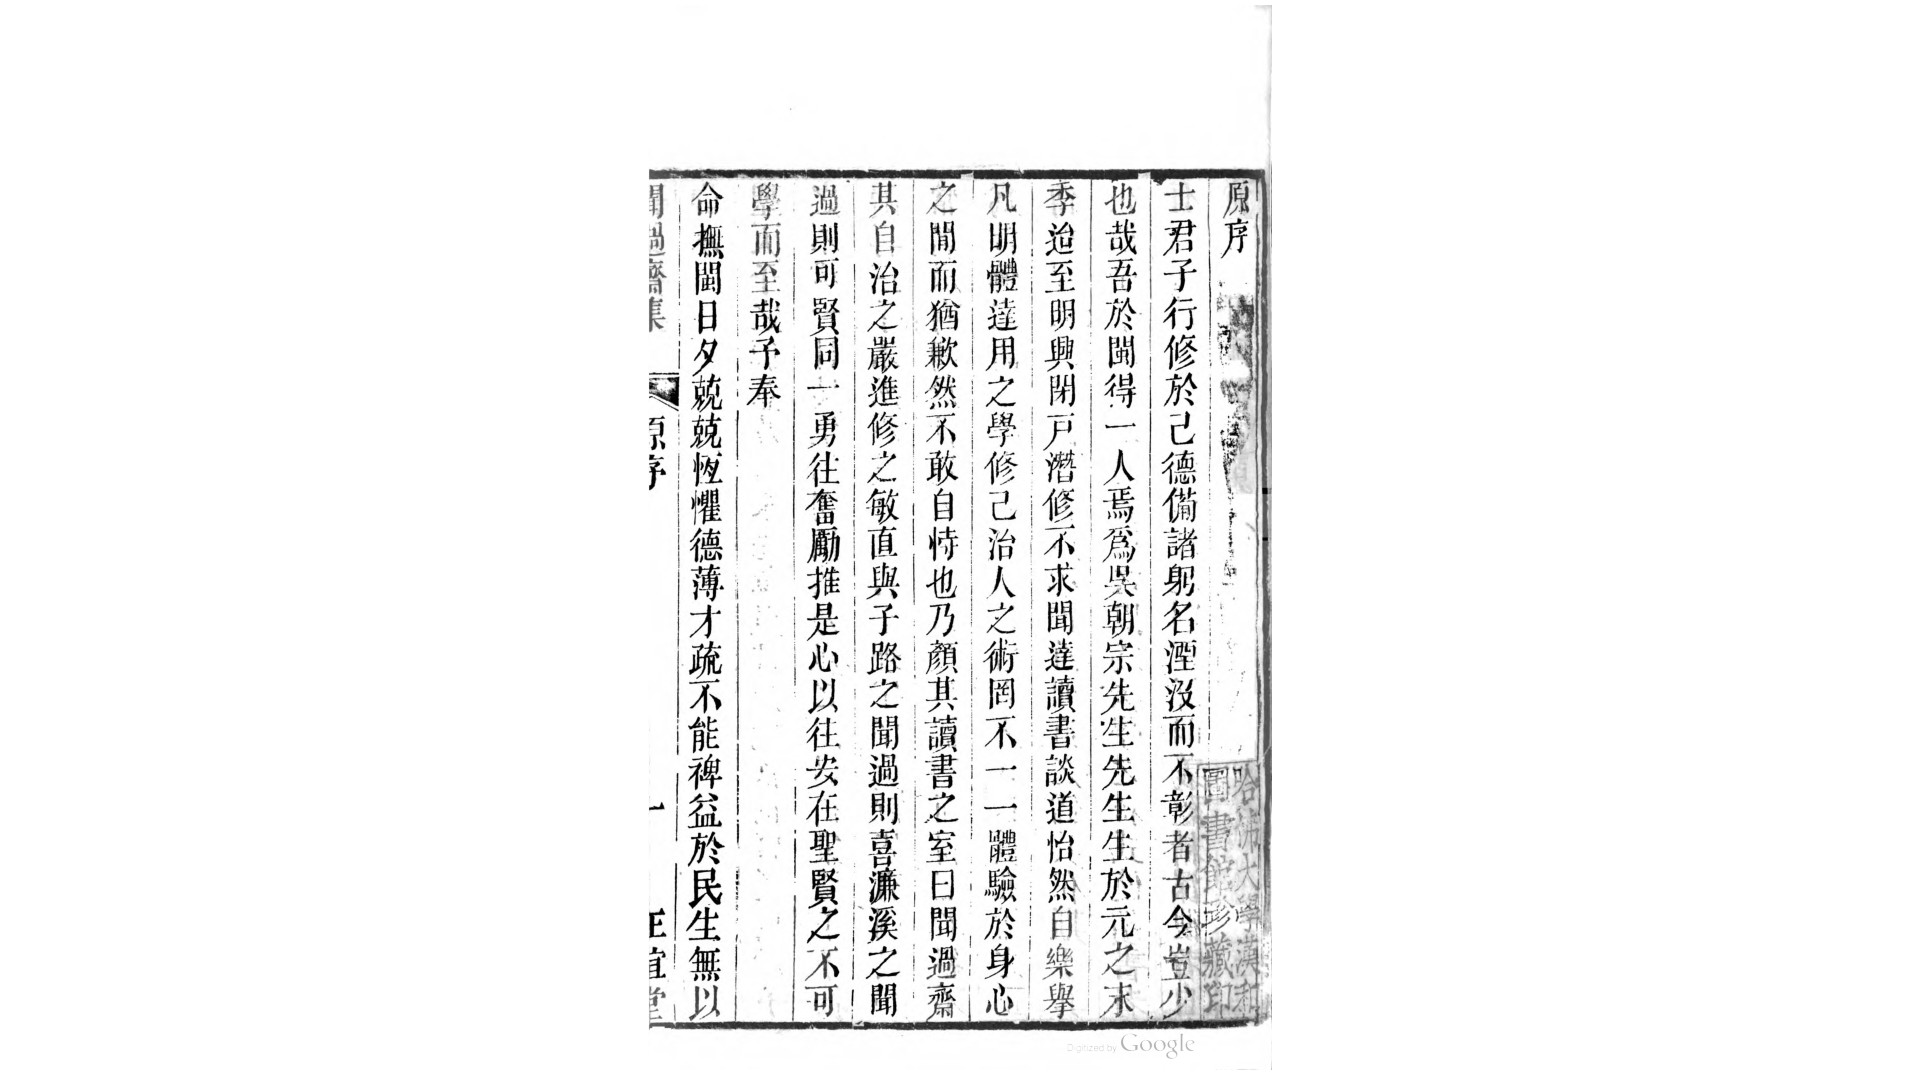 原序
士君子行修於己德備諸躬名湮沒而不彰者古今豈少
也哉吾於閩得一人焉爲吳朝宗先生先生生於元之末
季迨至明興閉戸潛修不求聞達讀書談道怡然自樂舉
凡明體達用之學修己治人之術罔不一一體驗於身心
之間而猶歉然不敢自恃也乃顏其讀書之室曰聞過齋
其自治之嚴進修之敏直與子路之聞過則喜濂溪之聞
過則可賢同一勇往奮勵推是心以往安在聖賢之不可
學而至哉予奉
命撫閩日夕兢兢恆懼德薄才疏不能裨益於民生無以
聞過齋集
原序
一
正誼堂
哈佛大學漢和
圖書館珍藏印
Digitized by Google